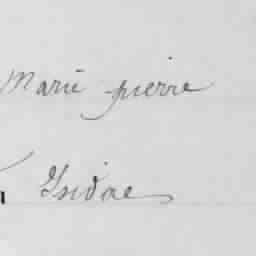 Marie pierre
Isidore